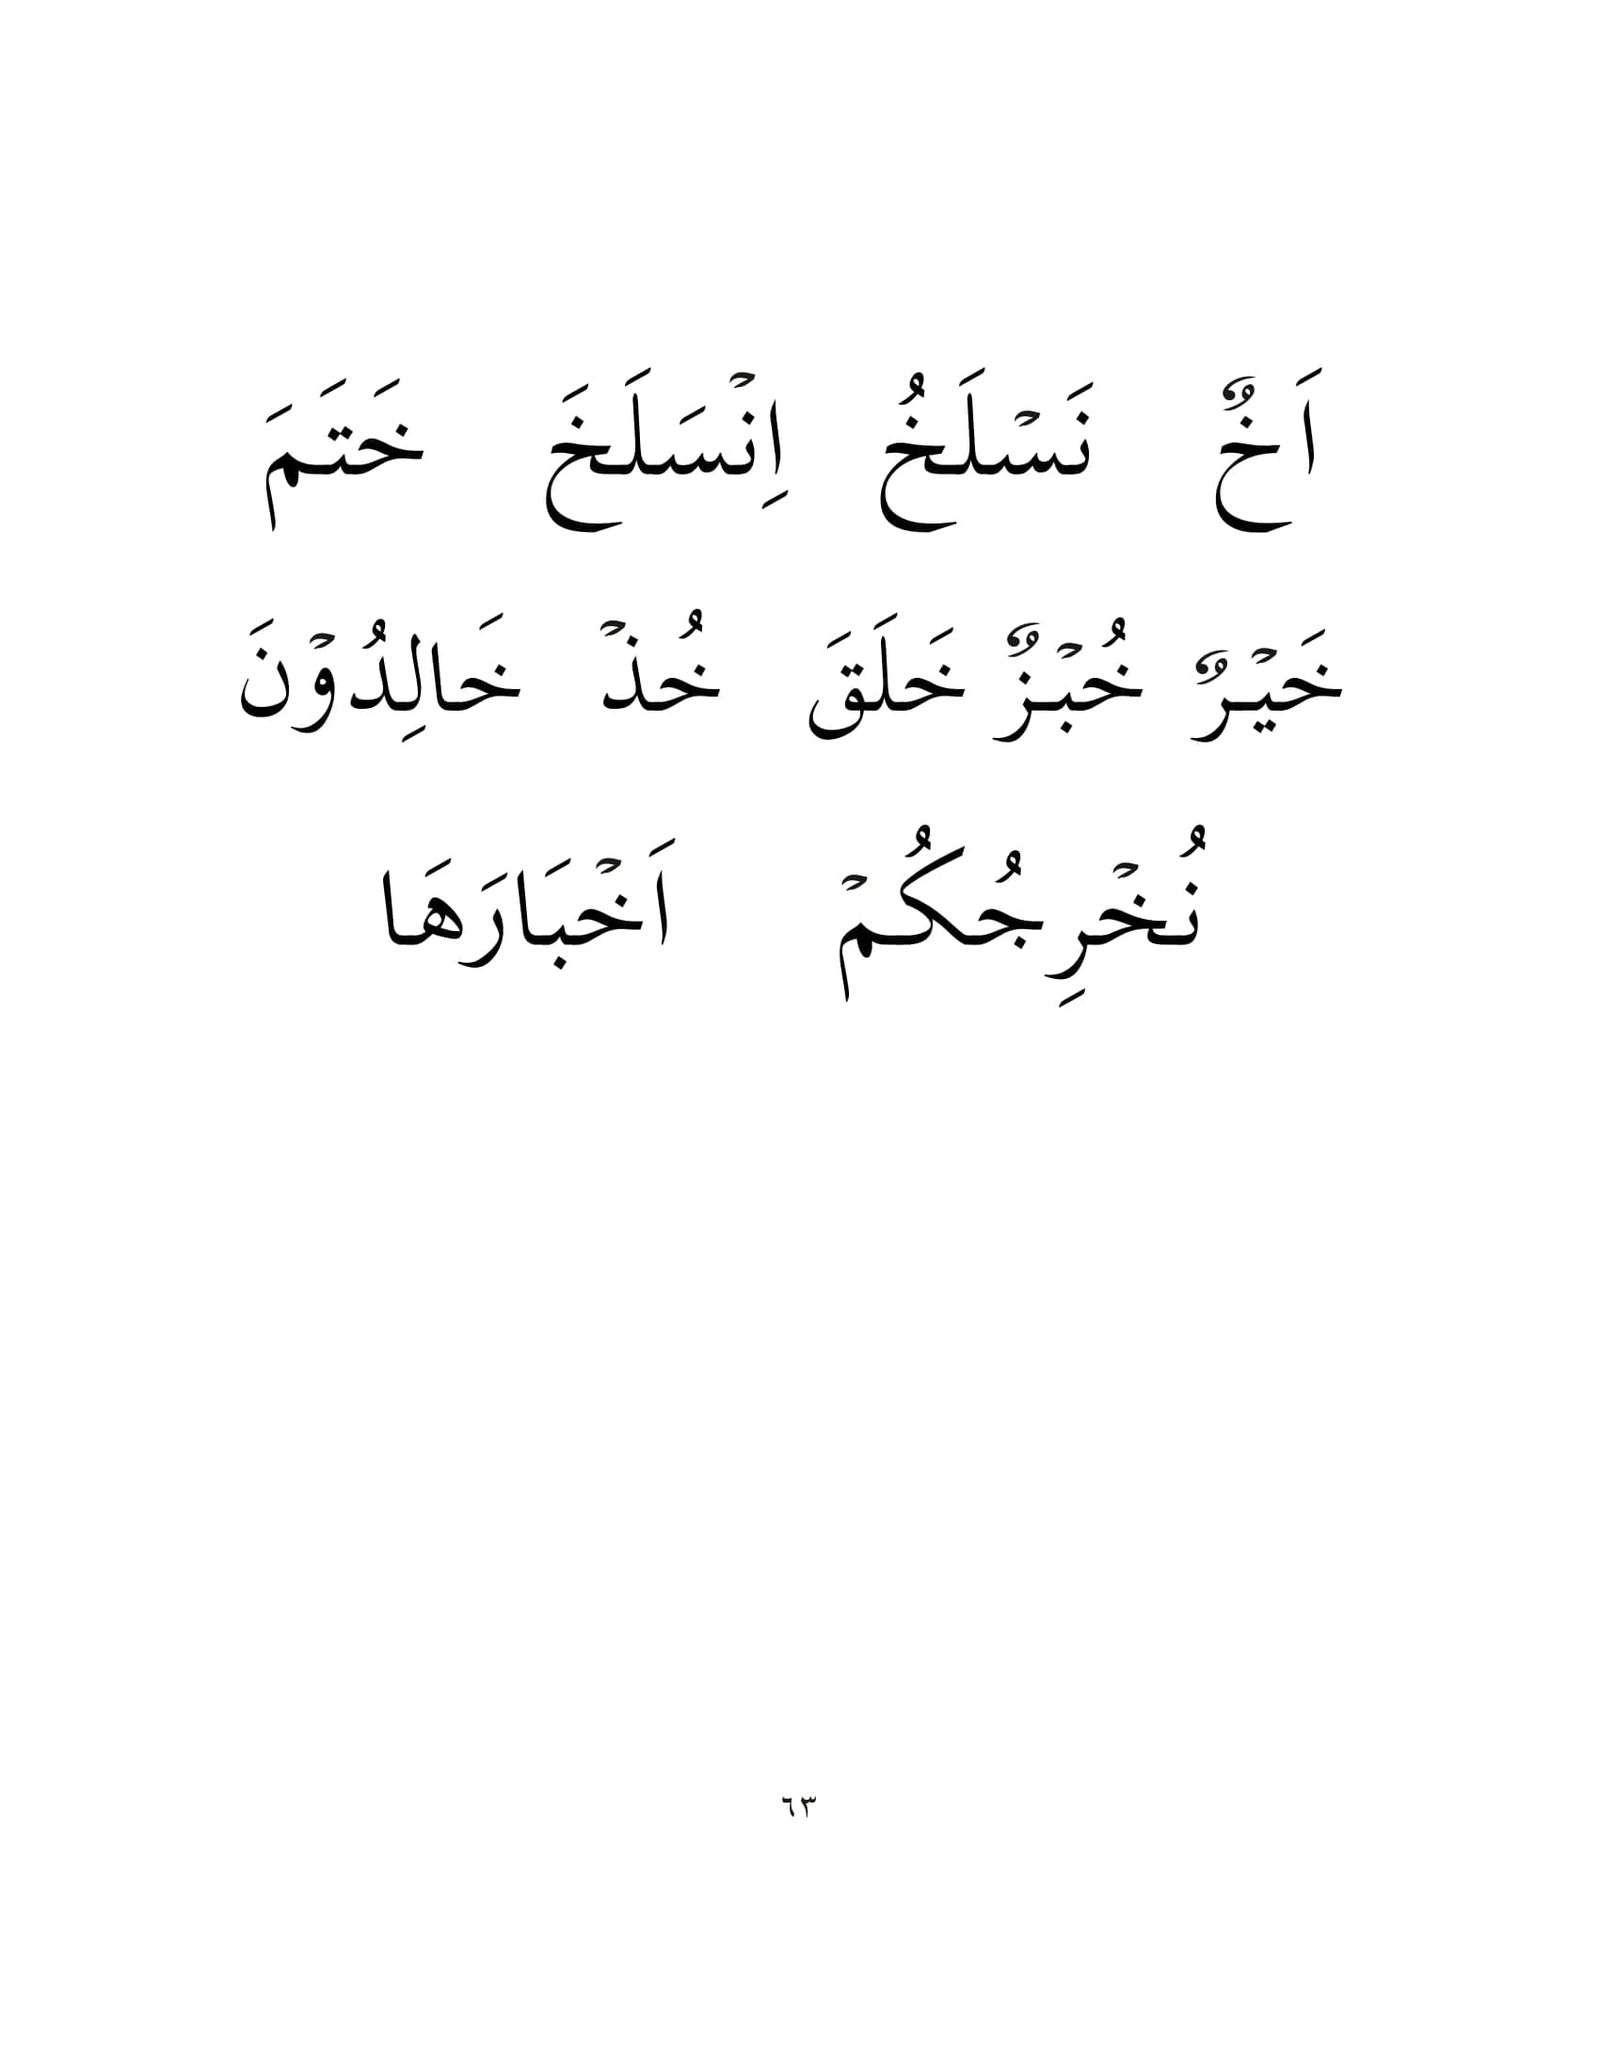 اَخٌ نَسْلَخُ اِنْسَلَخَ خَتَمَ
خَيْرٌ خُبْزٌ خَلَقَ خُذْ خَالِدُوْنَ
نُخْرِجُكُمْ اَخْبَارَهَا
٦٣